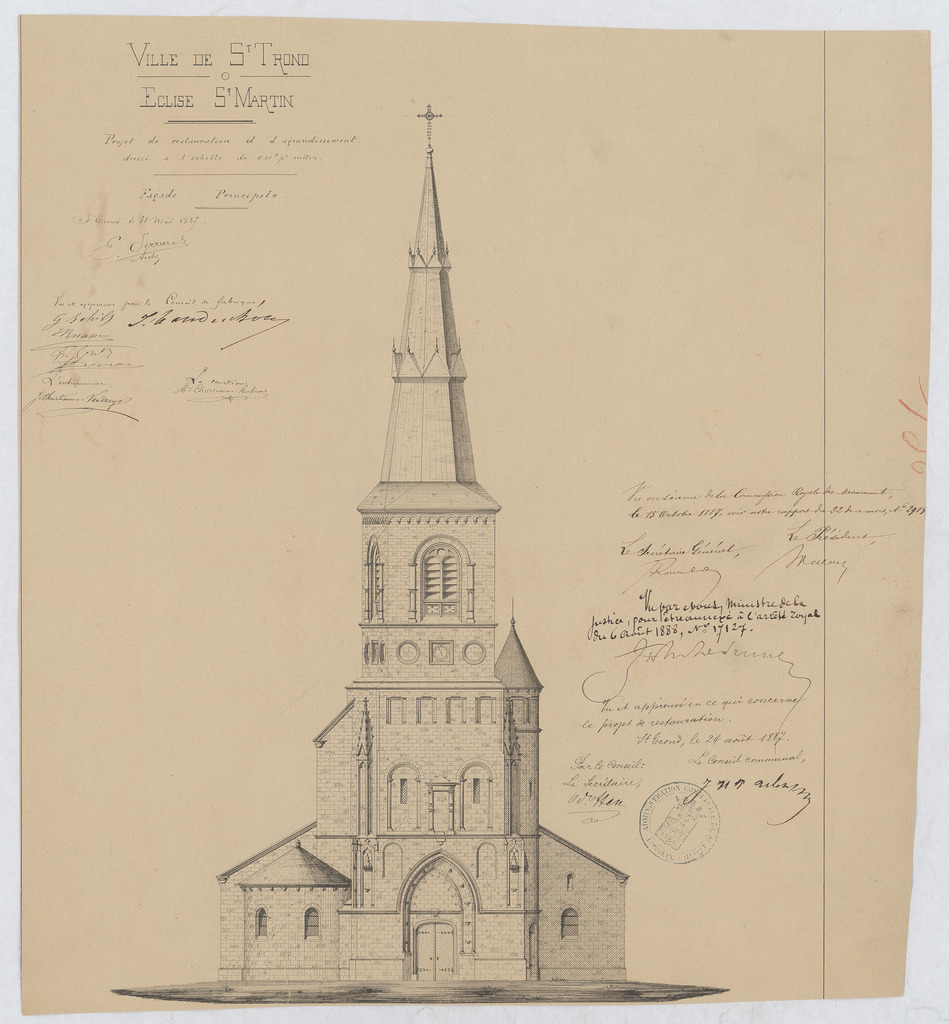 VILLE DE ST TROND
EGLISE ST MARTIN
Projet de restauration et d'agrandissement
dressé a l'échelle de 0.01m pr mètre.
Façade Principale.
St Trond le 31 Mai 1887.
Serrure
Archte
Vu et approuvé par le Conseil de fabrique,
L'entrepreneur
La caution
Vu en séance de la Commission Royale des Monuments,
le 15 Octobre 1887, voir notre rapport du 22 de ce mois, No
Le Secrétaire Général,
Le Président,
Vu par nous, Ministre de la
justice, pour être annexé à l'arrêté royal
du 6 août 1888, No 17127.
Vu et approuvé en ce qui concerne
le projet de restauration.
St Trond, le 24 août 1887.
Par le Conseil:
Le Conseil communal,
Le Secrétaire,
ADMINISTRATION